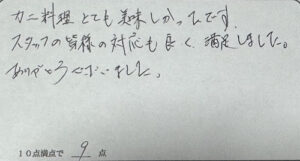 カニ料理とても美味しかったです。
スタッフの皆様の対応も良く、満足しました。
ありがとうございました。
10点満点で 9 点